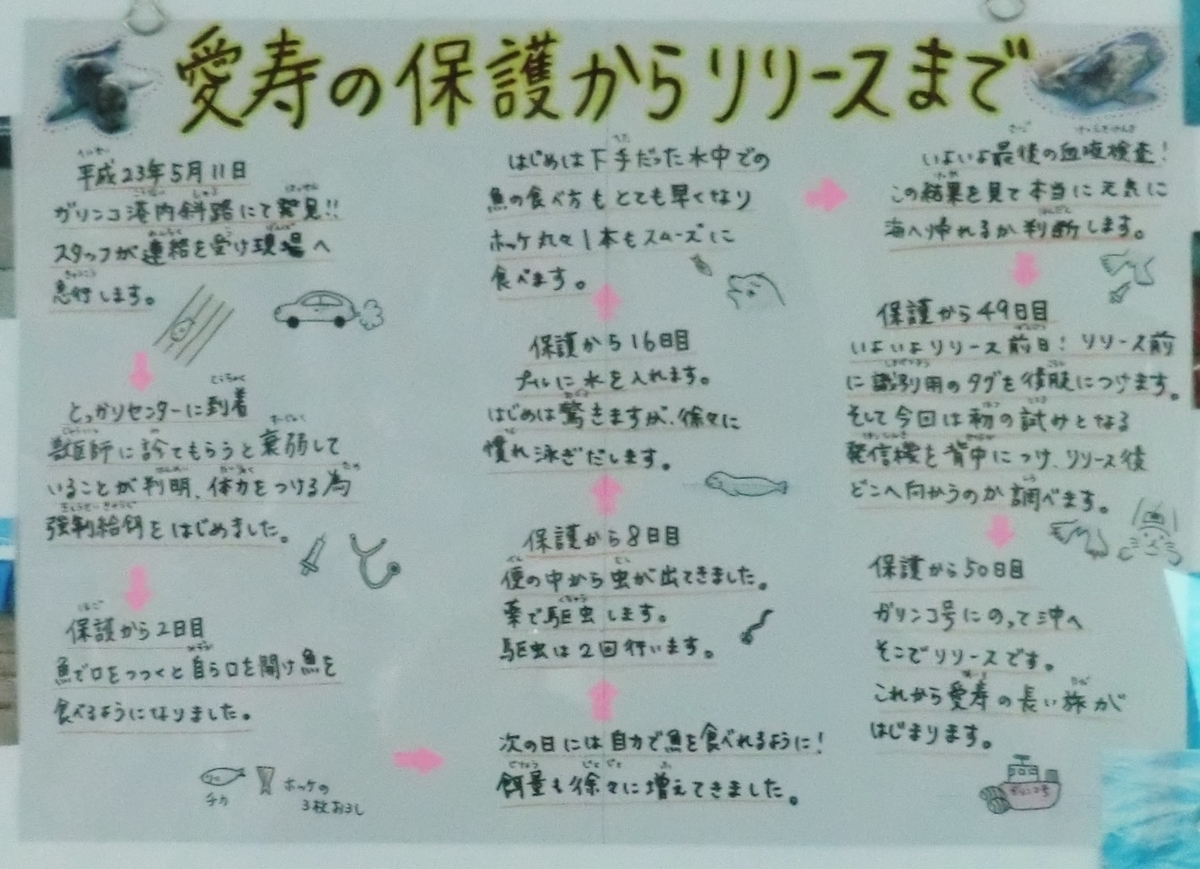 愛寿の保護からリリースまで
平成23年5月11日
ガリンコ港内斜路にて発見!!
スタッフが連絡を受け現場へ
急行します。
とっかりセンターに到着
獣医師に診てもらうと衰弱して
いることが判明、体力をつける為
強制給餌をはじめました。
保護から2日目
魚で口をつつくと自ら口を開け魚を
食べるようになりました。
チカ
ホッケの
3枚おろし
次の日には自力で魚を食べれるように!
餌量も徐々に増えてきました。
保護から8日目
便の中から虫が出てきました。
薬で駆虫します。
駆虫は2回行います。
保護から16日目
プールに水を入れます。
はじめは驚きますが、徐々に
慣れ泳ぎだします。
はじめは下手だった水中での
魚の食べ方もとても早くなり
ホッケ丸々1本もスムーズに
食べます。
いよいよ最後の血液検査!
この結果を見て本当に元気に
海へ帰れるか判断します。
保護から49日目
いよいよリリース前日!リリース前
に識別用のタグを後肢につけます。
そして今回は初の試みとなる
発信機を背中につけ、リリース後
どこへ向かうのか調べます。
保護から50日目
ガリンコ号にのって沖へ
そこでリリースです。
これから愛寿の長い旅が
はじまります。
ガリンコ号